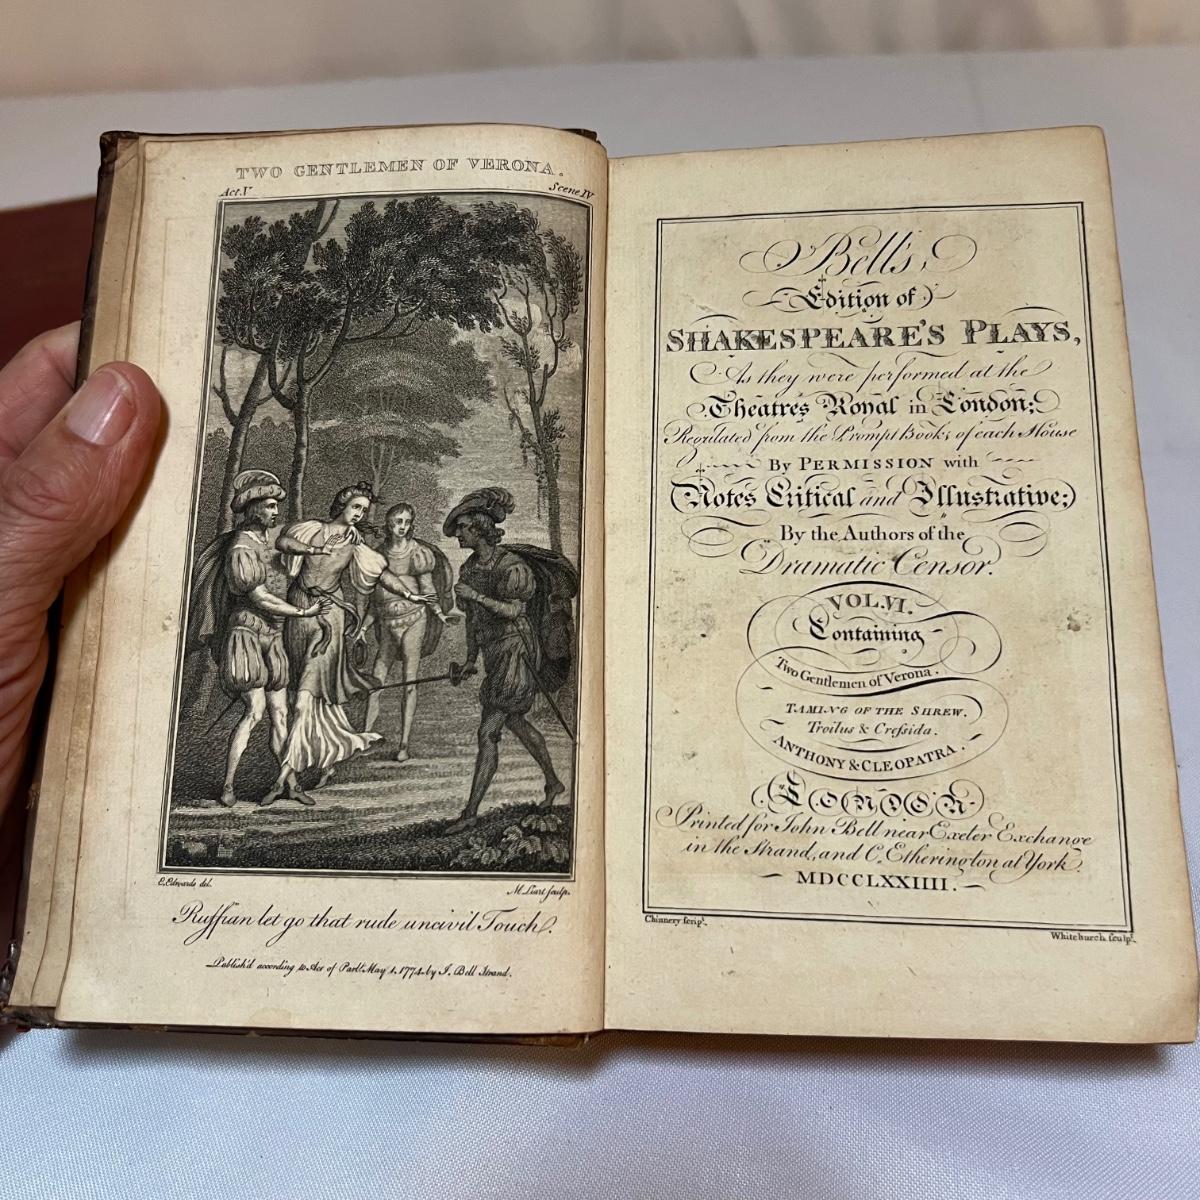 TWO GENTLEMEN OF VERONA.
Act.V Scene.IV
E.Edwards del.
M.Liart sculp.
Ruffian let go that rude uncivil Touch.
Publish'd according to Act of Parlt. May 1. 1774. by J. Bell Strand.
Bell's
Edition of
SHAKESPEARE'S PLAYS,
As they were performed at the
Theatres Royal in London;
Regulated from the Prompt Books of each House
By PERMISSION with
Notes Critical and Illustrative;
By the Authors of the
Dramatic Censor.
VOL.VI.
Containing
Two Gentlemen of Verona.
TAMING OF THE SHREW.
Troilus & Cressida.
ANTHONY & CLEOPATRA.
LONDON
Printed for John Bell near Exeter Exchange
in the Strand, and C. Etherington at York.
MDCCLXXIIII.
Chinnery scrips.
Whitchurch sculpt.